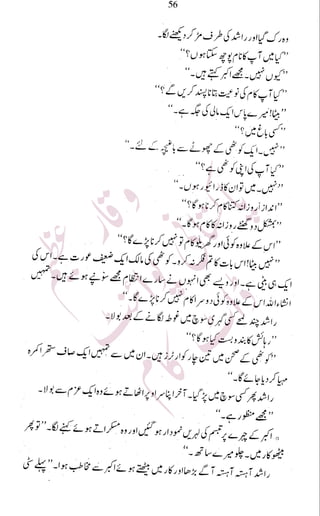 56
وہ رک گیا اور راشد کی طرف مڑ کر دیکھنے لگا۔
’’کیا میں آپ کا نام پوچھ سکتا ہوں؟‘‘
’’کیوں نہیں۔ مجھے اکبر کہتے ہیں۔‘‘
’’کیا آپ کام کی نوعیت بتانا پسند کریں گے؟‘‘
’’بیٹا! میرے پاس ایک مالی کی جگہ ہے۔‘‘
’’کسی باغ میں؟‘‘
’’نہیں۔ ایک کوٹھی کے چھوٹے سے باغیچے کے لئے۔‘‘
’’کیا آپ کی اپنی کوٹھی ہے؟‘‘
’’نہیں۔ میں تو ان کا ڈرائیور ہوں۔‘‘
’’اندازاً روزانہ کتنا کام کرنا ہوگا؟‘‘
’’بمشکل دو گھنٹے روزانہ کا کام ہوگا۔‘‘
’’اس کے علاوہ کوئی اور گھریلو کام تو نہیں کرنا پڑے گا؟‘‘
’’نہیں بیٹا! اس بات کا تم فکر نہ کرو۔ کوٹھی کی مالک ایک ضعیف عورت ہے۔ اس کی
ایک ہی بیٹی ہے۔ اور ویسے بھی انہوں نے سارے انتظام مجھے سونپے ہوئے ہیں۔ تمہیں
انشاء اللہ اس کے علاوہ کوئی دوسرا کام نہیں کرنا پڑے گا۔‘‘
راشد چند لمحے کسی گہری سوچ میں غوطہ لگانے کے بعد بولا۔
’’رہائش کا بندوبست کیا ہوگا؟‘‘
’’کوٹھی کے صحن میں تین چار کوارٹرز ہیں۔ ان میں سے تمہیں ایک صاف ستھرا کمرہ
مہیا کر دیا جائے گا۔‘‘
راشد پھر کسی سوچ میں پڑ گیا۔ آخر اپنا سر اوپر اٹھاتے ہوئے وہ ایک عزم سے بولا۔
’’مجھے منظور ہے۔‘‘
اکبر کے چہرے پر تبسم کی لہریں نمودار ہو گئیں اور وہ مسکراتے ہوئے کہنے لگا۔ ’’تو پھر
بیٹھو کار میں۔ چلو میرے ساتھ۔‘‘
راشد آہستہ آہستہ آگے بڑھا اور کار میں بیٹھتے ہوئے اکبر سے مخاطب ہوا۔ ’’پہلے سٹی